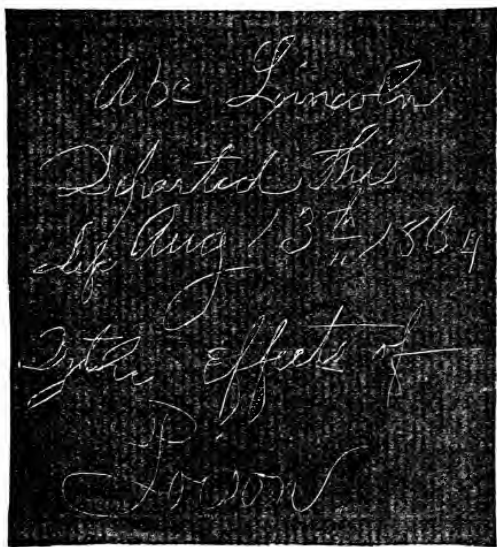 Abe Lincoln
Departed this
life Aug 13th 1864
By the effects of
Poison